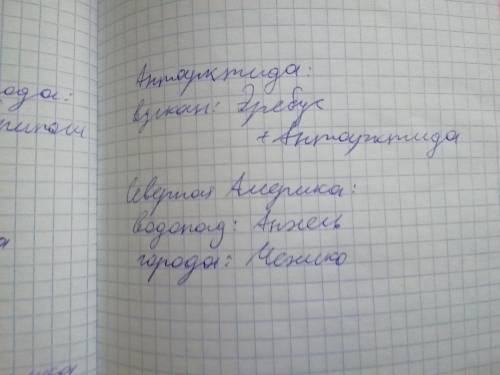 ода:
Антарктида:
вулкан: Эребус
+ Антарктида
Северная Америка:
водопад: Анхель
города: Мехико